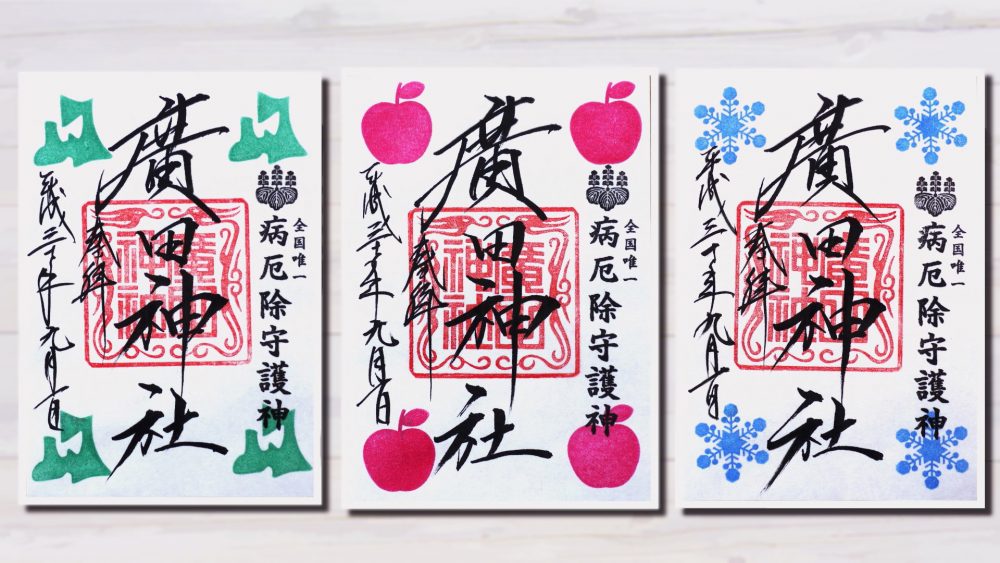 全国唯一
病厄除守護神
廣田神社
奉拝
平成三十年九月一日
全国唯一
病厄除守護神
廣田神社
奉拝
平成三十年九月一日
全国唯一
病厄除守護神
廣田神社
奉拝
平成三十年九月一日